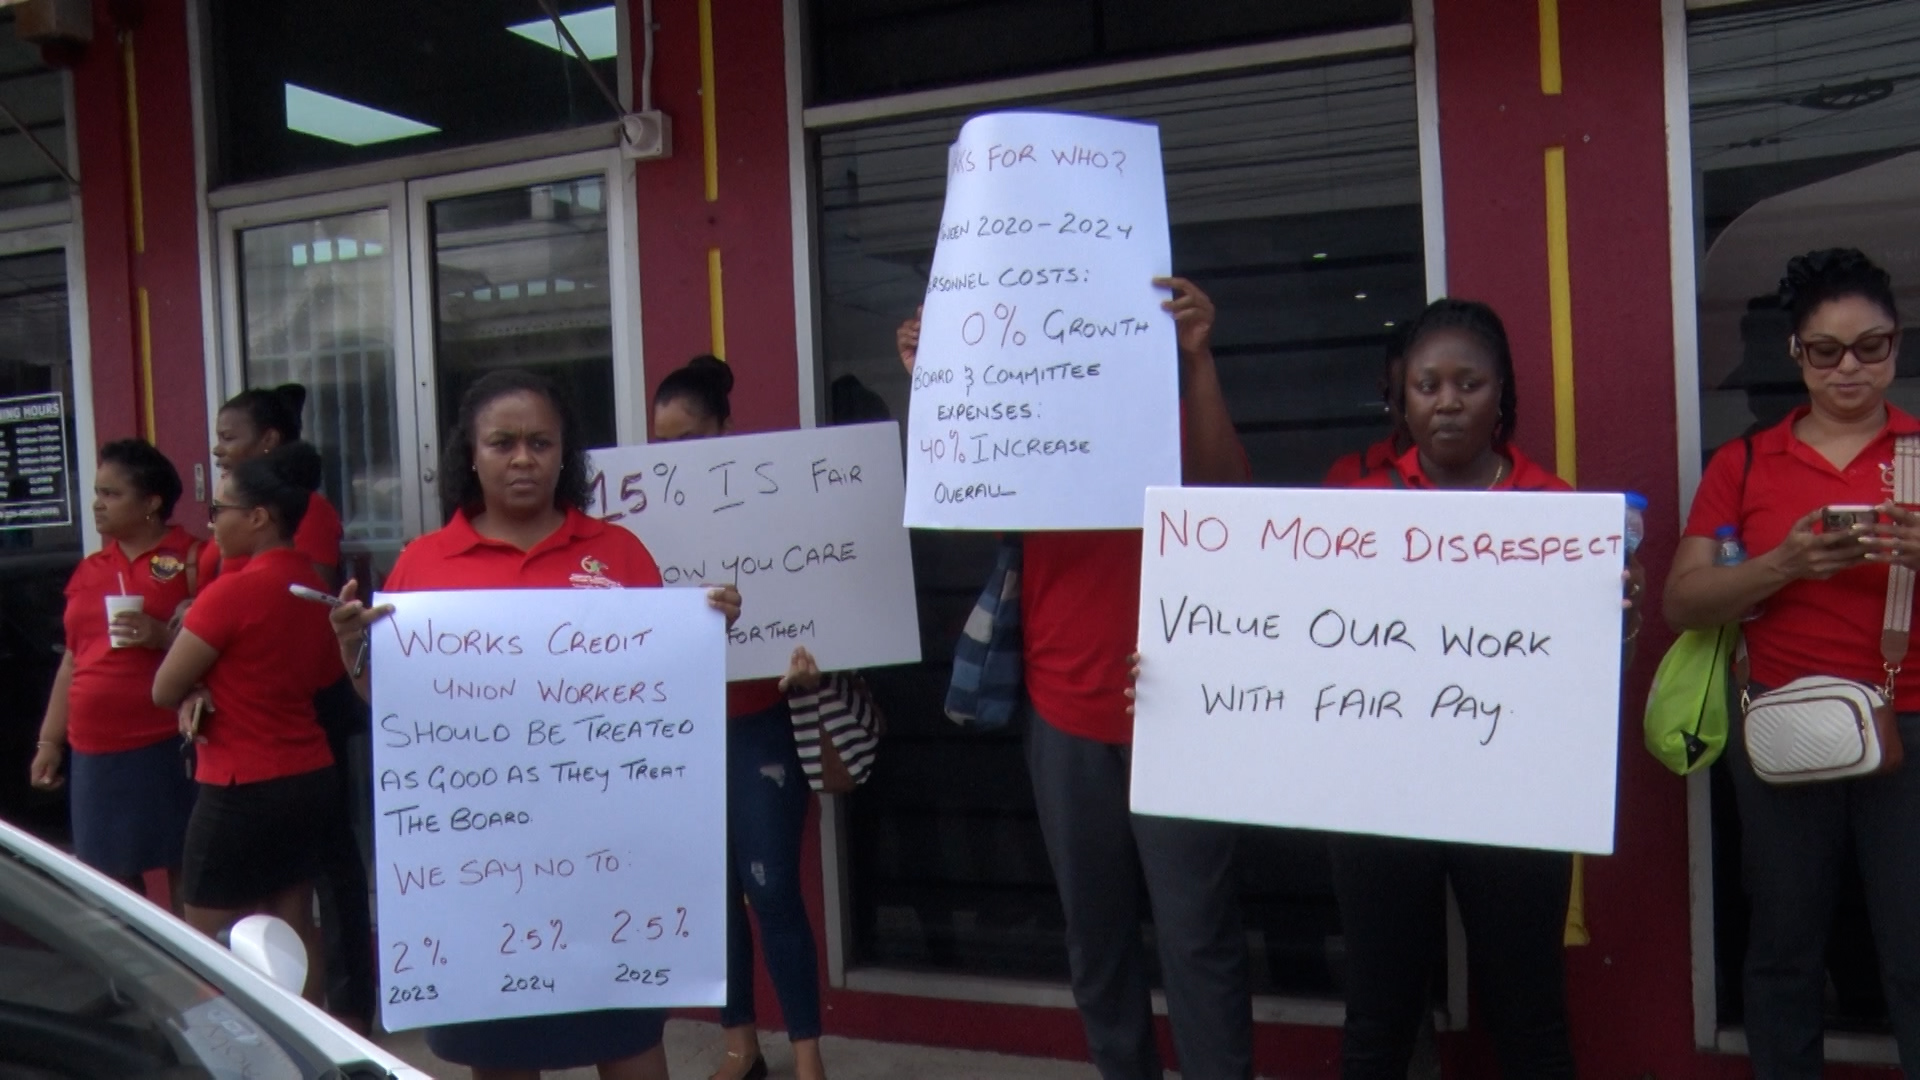 WORKS CREDIT
UNION WORKERS
SHOULD BE TREATED
AS GOOD AS THEY TREAT
THE BOARD.
WE SAY NO TO:
2% 2.5% 2.5%
2023 2024 2025
15% IS FAIR
YOU CARE
FOR THEM
FOR WHO?
2020-2024
COSTS:
0% GROWTH
BOARD & COMMITTEE
EXPENSES:
40% INCREASE
OVERALL
NO MORE DISRESPECT
VALUE OUR WORK
WITH FAIR PAY.
HOURS